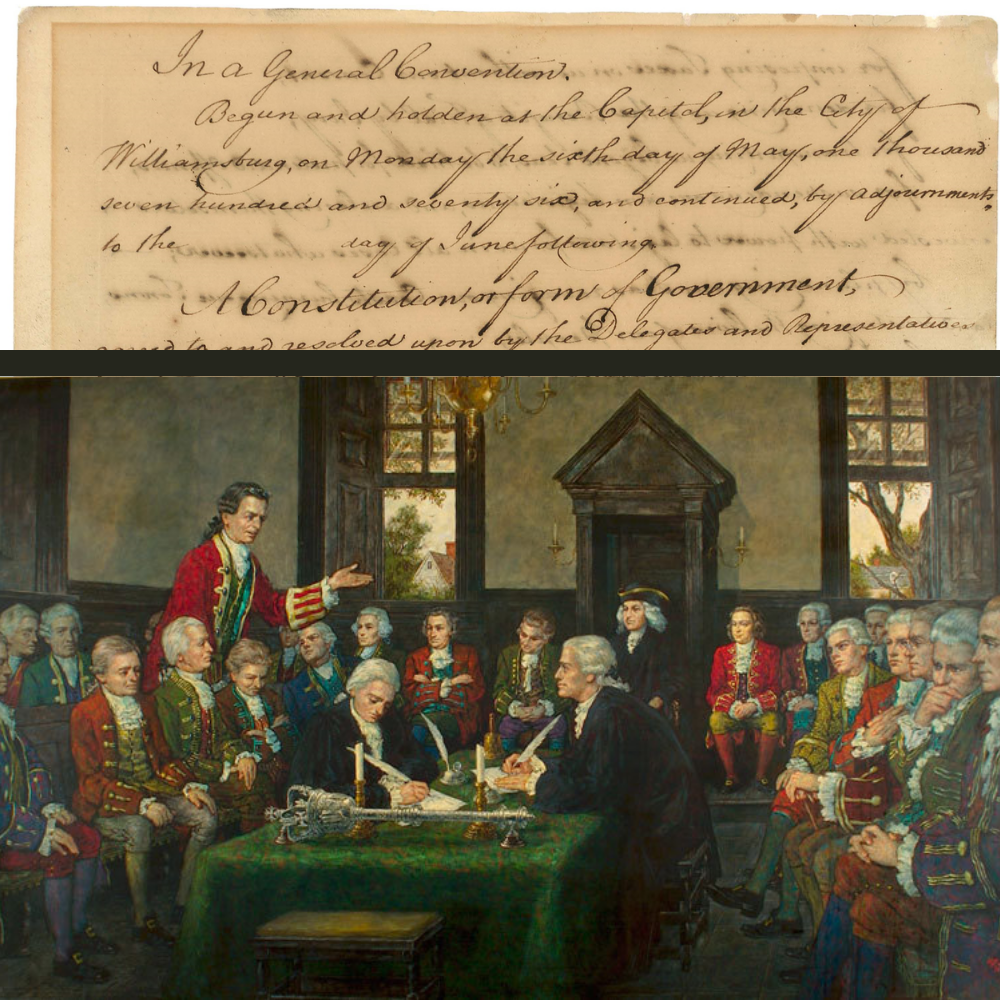 In a General Convention.
Begun and holden at the Capitol, in the City of
Williamsburg, on Monday the sixth day of May, one thousand
seven hundred and seventy six, and continued, by adjournments
to the day of June following.
A Constitution, or form of Government,
agreed to and resolved upon by the Delegates and Representatives